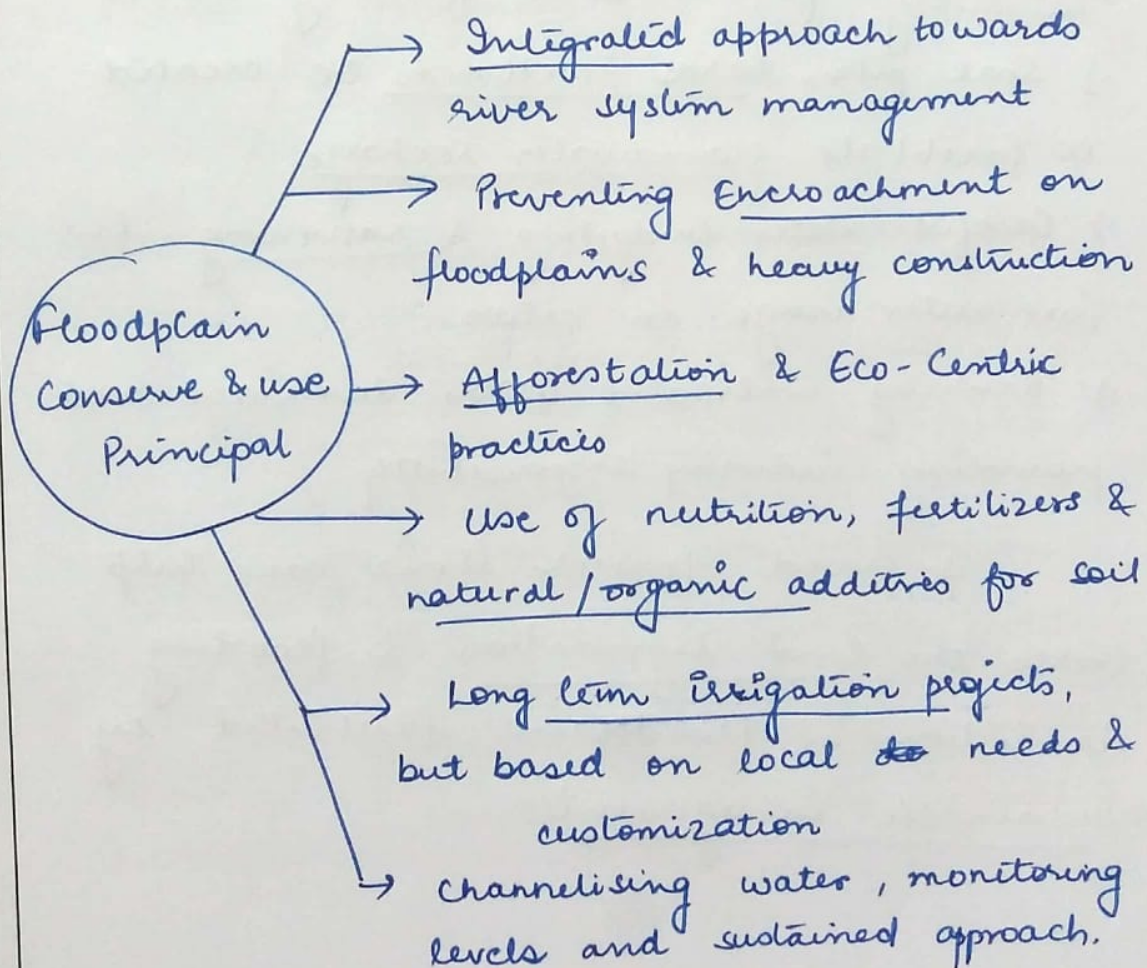 Floodplain
Conserve & use
Principal
Integrated approach towards
river system management
Preventing Encroachment on
floodplains & heavy construction
Afforestation & Eco-Centric
practices
Use of nutrition, fertilizers &
natural/organic additives for soil
Long term irrigation projects,
but based on local needs &
customization
Channelising water, monitoring
levels and sustained approach.